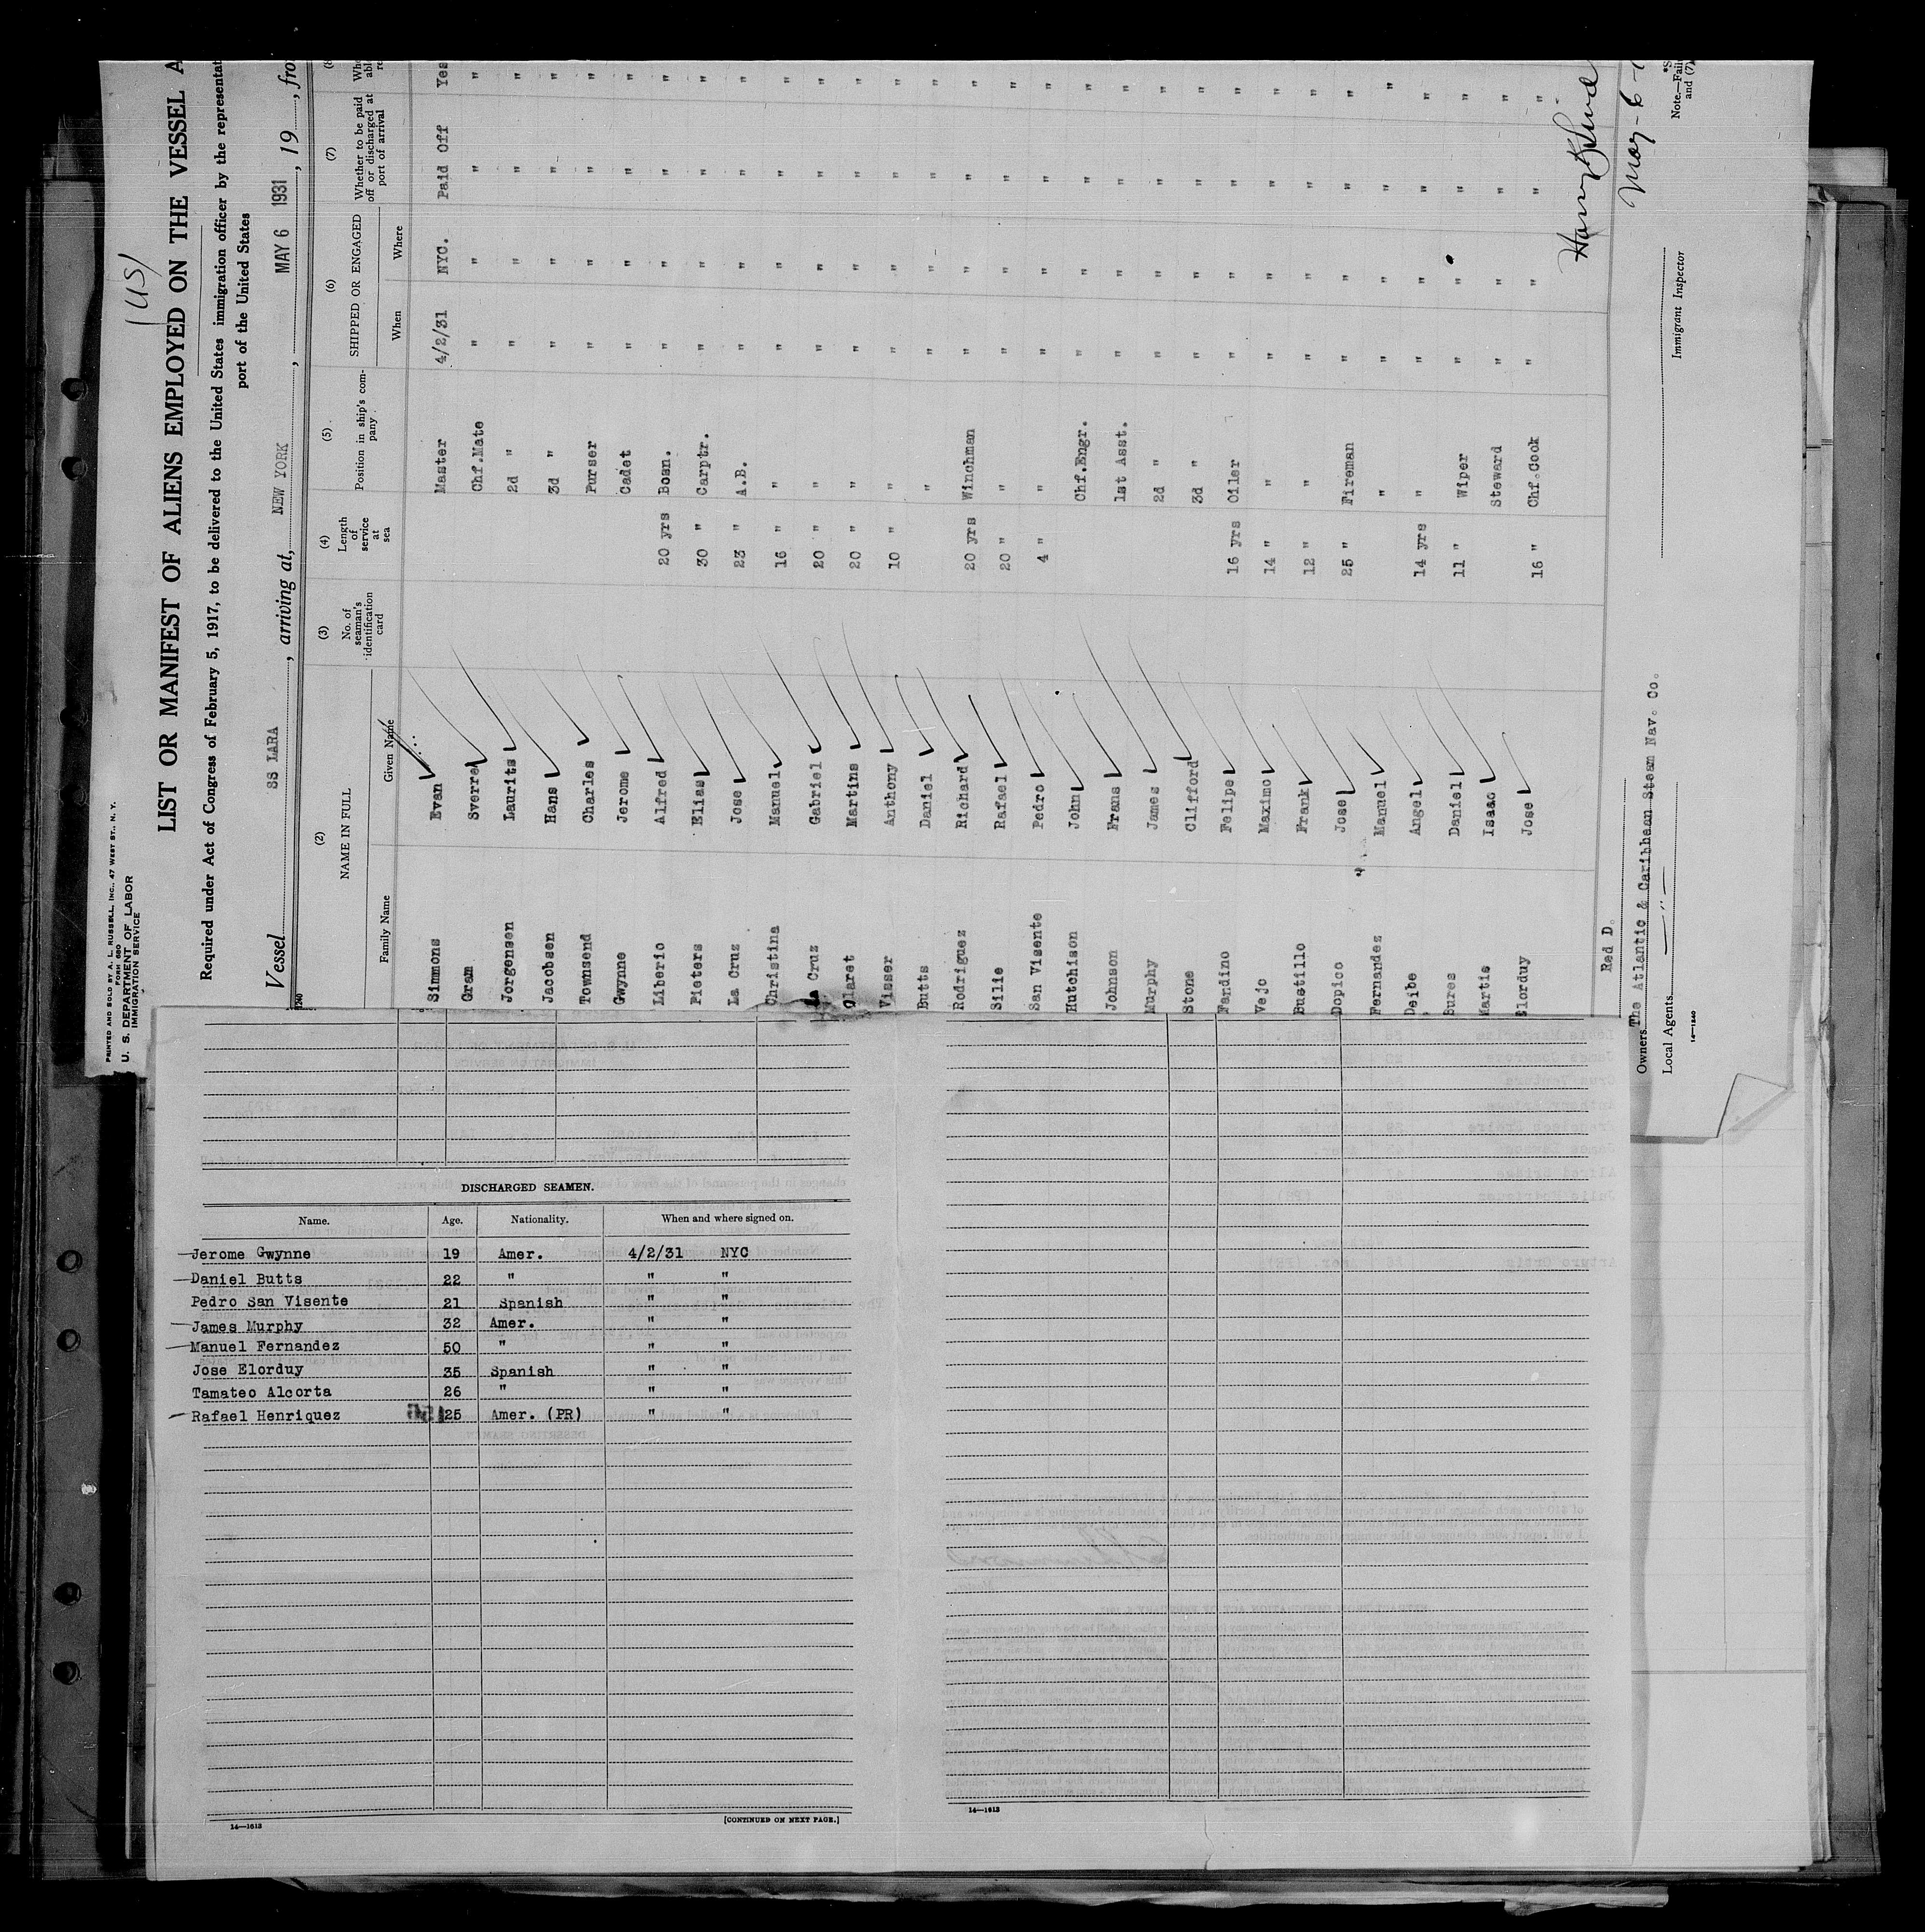 (US)
PRINTED AND SOLD BY A. L. RUSSELL, INC., 47 WEST ST., N. Y.
FORM 680
U. S. DEPARTMENT OF LABOR
IMMIGRATION SERVICE
LIST OR MANIFEST OF ALIENS EMPLOYED ON THE VESSEL A
Required under Act of Congress of February 5, 1917, to be delivered to the United States immigration officer by the representat
port of the United States
Vessel SS LARA, arriving at, NEW YORK, MAY 6 1931, 19, fro
(2) (3) (4) (5) (6) (7) (8
NAME IN FULL
Family Name Given Name
No. of seaman's identification card
Length of service at sea
Position in ship's company
SHIPPED OR ENGAGED
When Where
Whether to be paid off or discharged at port of arrival
Simmons Evan Master 4/2/31 NYC. Paid Off Yes
Gram Sverre Chf.Mate " " " "
Jorgensen Laurits 2d " " " " "
Jacobsen Hans 3d " " " " "
Townsend Charles Purser " " " "
Gwynne Jerome Cadet " " " "
Liberio Alfred 20 yrs Bosn. " " " "
Pieters Elias 30 " Carptr. " " " "
La Cruz Jose 23 " A.B. " " " "
Christina Manuel 16 " " " " " "
La Cruz Gabriel 20 " " " " " "
Claret Martins 20 " " " " " "
Visser Anthony 10 " " " " " "
Butts Daniel " " " " "
Rodriguez Richard 20 yrs Winchman " " " "
Silie Rafael 20 " " " " " "
San Visente Pedro 4 " " " " " "
Hutchison John Chf.Engr. " " " "
Johnson Frans 1st Asst. " " " "
Murphy James 2d " " " " "
Stone Clifford 3d " " " " "
Fandino Felipe 16 yrs Oiler " " " "
Vejo Maximo 14 " " " " " "
Bustillo Frank 12 " " " " " "
Dopico Jose 25 " Fireman " " " "
Fernandez Manuel " " " " "
Deibe Angel 14 yrs " " " " "
Bures Daniel 11 " Wiper " " " "
Martis Isaac Steward " " " "
Elorduy Jose 16 " Chf.Cook " " " "
Red D.
Owners The Atlantic & Caribbean Steam Nav. Co.
Local Agents — " —
14—1240
Immigrant Inspector
May-6-
Note.—Fail
and (7)
DISCHARGED SEAMEN.
Name. Age. Nationality. When and where signed on.
Jerome Gwynne 19 Amer. 4/2/31 NYC
Daniel Butts 22 " " "
Pedro San Visente 21 Spanish " "
James Murphy 32 Amer. " "
Manuel Fernandez 50 " " "
Jose Elorduy 35 Spanish " "
Tamateo Alcorta 26 " " "
Rafael Henriquez 25 Amer. (PR) " "
14—1613
[CONTINUED ON NEXT PAGE.]
14—1613